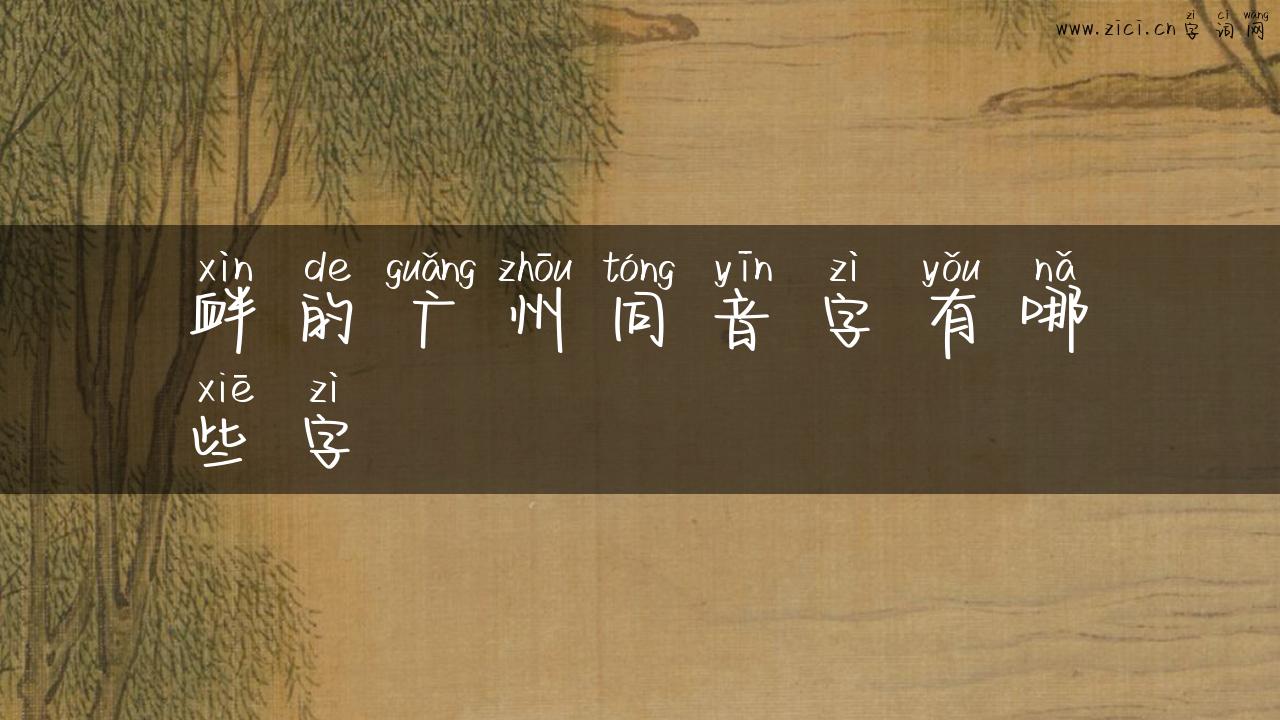 zì cí wǎng
www.zici.cn字词网
xìn de guǎng zhōu tóng yīn zì yǒu nǎ
衅的广州同音字有哪
xiē zì
些字